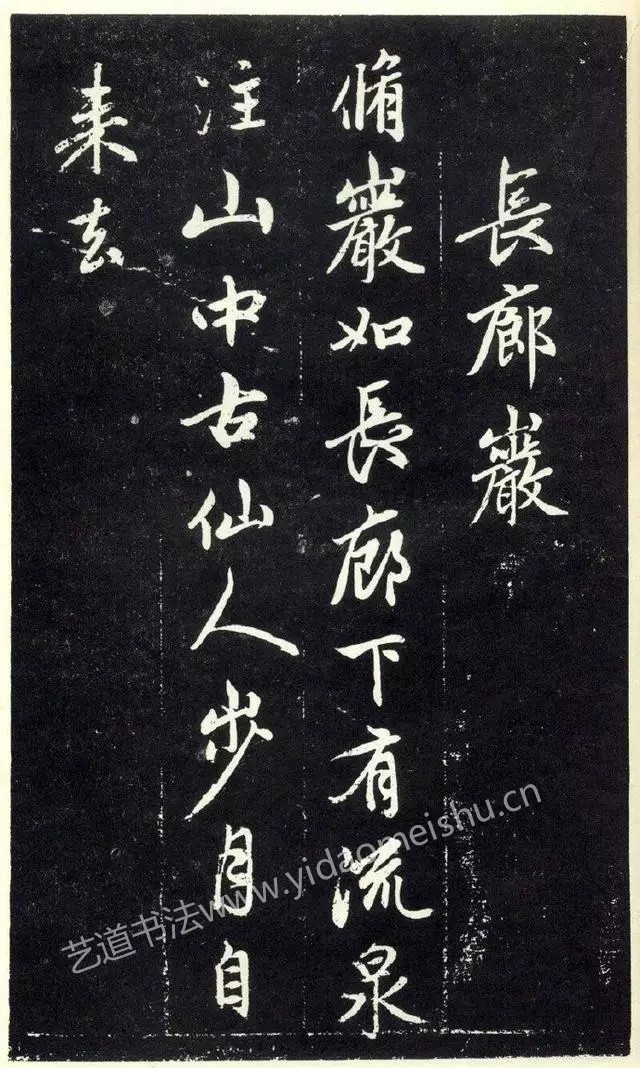 長廊巖
脩巖如長廊下有流泉
注山中古仙人步月自
来去
艺道书法www.yidaomeishu.cn